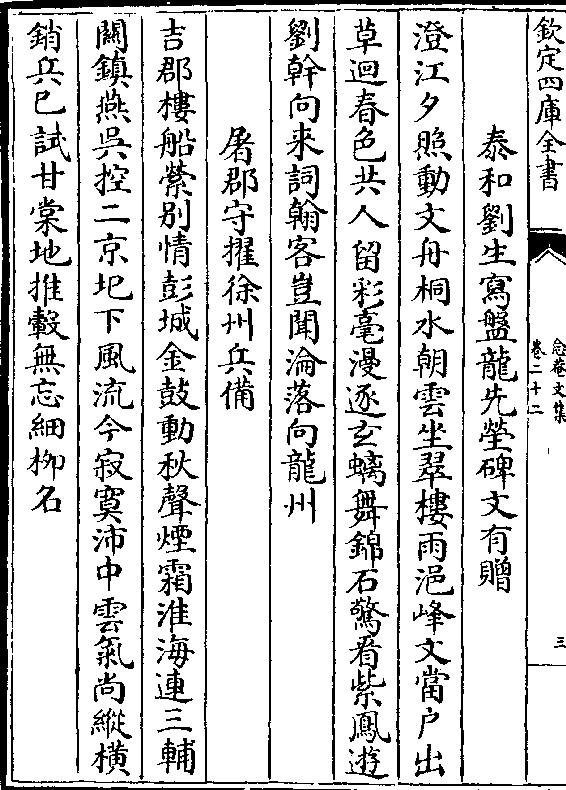 欽定四庫全書
念菴文集
卷二十二
三
泰和劉生寫盤龍先塋碑文有贈
澄江夕照動文舟桐水朝雲坐翠樓雨浥峰文當户出
草迴春色共人留彩毫漫逐玄螭舞錦石驚看紫鳳遊
劉幹向来詞翰客豈聞淪落向龍州
屠郡守擢徐州兵備
吉郡樓船縈别情彭城金鼓動秋聲煙霜淮海連三輔
闗鎮燕吳控二京圯下風流今寂寞沛中雲氣尚縱横
銷兵已試甘棠地推轂無忘細栁名